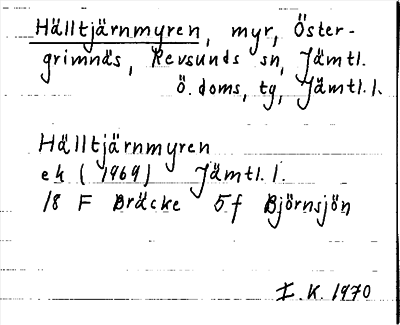 Hälltjärnmyren, myr, Öster-
grimnäs, Revsunds sn, Jämtl.
Ö. doms, tg, Jämtl. l.
Hälltjärnmyren
ek (1969) Jämtl. l.
18 F Bräcke 5f Björnsjön
I. K. 1970